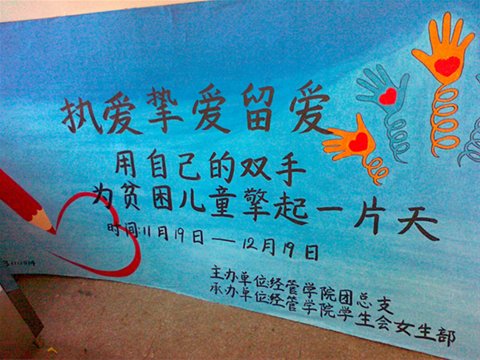 执爱挚爱留爱
用自己的双手
为贫困儿童擎起一片天
时间:11月19日—12月19日
主办单位经管学院团总支
承办单位经管学院学生会女生部